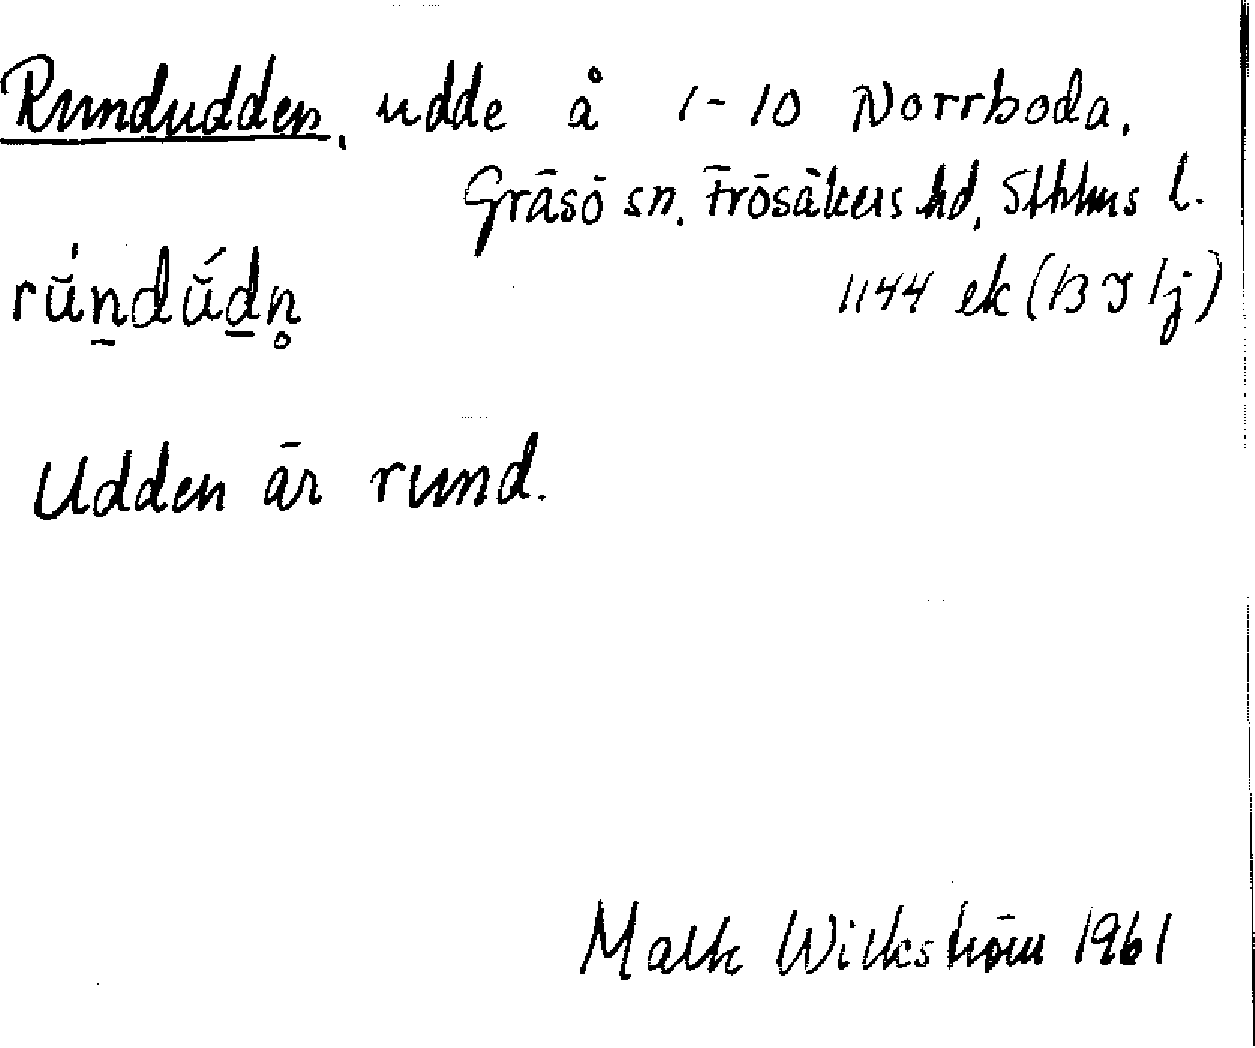 Rundudden, udde å 1-10 Norrboda,
Gräsö sn. Frösåkers hd, Sthlms l.
rúndúdn̥
1144 ek (13 I 1j)
Udden är rund.
Wikström 1961